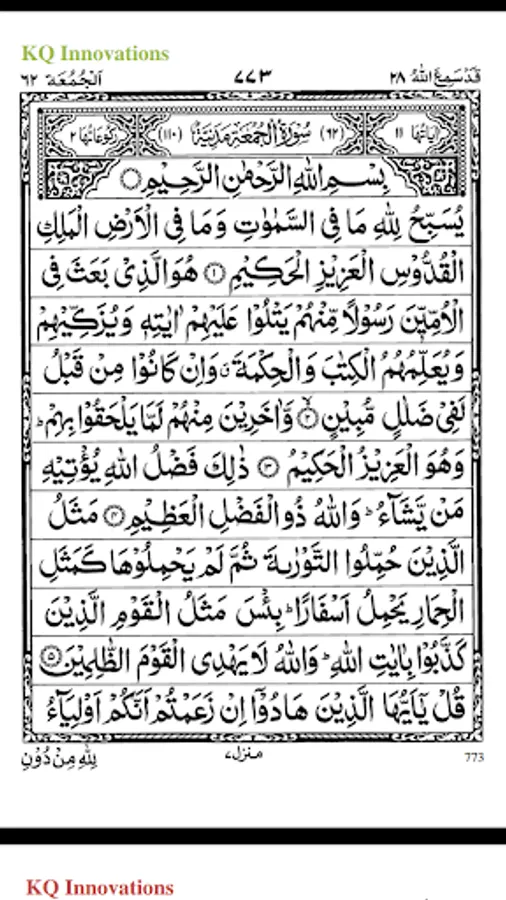 KQ Innovations
قَدۡسَمِعَ اللهُ ٢٨
٧٧٣
اَلۡجُمُعَة ٦٢
اٰيَاتُهَا ١١
(٦٢) سُوۡرَةُ الۡجُمُعَةِ مَدَنِيَّةٌ (١١٠)
رُكُوۡعَاتُهَا ٢
بِسۡمِ اللهِ الرَّحۡمٰنِ الرَّحِيۡمِ
يُسَبِّحُ لِلّٰهِ مَا فِى السَّمٰوٰتِ وَمَا فِى الۡاَرۡضِ الۡمَلِكِ
الۡقُدُّوۡسِ الۡعَزِيۡزِ الۡحَكِيۡمِ ۝١ هُوَالَّذِىۡ بَعَثَ فِى
الۡاُمِّيّٖنَ رَسُوۡلًا مِّنۡهُمۡ يَتۡلُوۡا عَلَيۡهِمۡ اٰيٰتِهٖ وَيُزَكِّيۡهِمۡ
وَيُعَلِّمُهُمُ الۡكِتٰبَ وَالۡحِكۡمَةَ وَاِنۡ كَانُوۡا مِنۡ قَبۡلُ
لَفِىۡ ضَلٰلٍ مُّبِيۡنٍ ۝٢ وَّاٰخَرِيۡنَ مِنۡهُمۡ لَمَّا يَلۡحَقُوۡا بِهِمۡ ؕ
وَهُوَ الۡعَزِيۡزُ الۡحَكِيۡمُ ۝٣ ذٰلِكَ فَضۡلُ اللهِ يُؤۡتِيۡهِ
مَنۡ يَّشَآءُ ؕ وَاللهُ ذُوالۡفَضۡلِ الۡعَظِيۡمِ ۝٤ مَثَلُ
الَّذِيۡنَ حُمِّلُوا التَّوۡرٰىةَ ثُمَّ لَمۡ يَحۡمِلُوۡهَا كَمَثَلِ
الۡحِمَارِ يَحۡمِلُ اَسۡفَارًا ؕ بِئۡسَ مَثَلُ الۡقَوۡمِ الَّذِيۡنَ
كَذَّبُوۡا بِاٰيٰتِ اللهِ ؕ وَاللهُ لَا يَهۡدِى الۡقَوۡمَ الظّٰلِمِيۡنَ ۝٥
قُلۡ يٰۤاَيُّهَا الَّذِيۡنَ هَادُوۡۤا اِنۡ زَعَمۡتُمۡ اَنَّكُمۡ اَوۡلِيَآءُ
لِلّٰهِ مِنۡ دُوۡنِ
منزل ٧
773
KQ Innovations